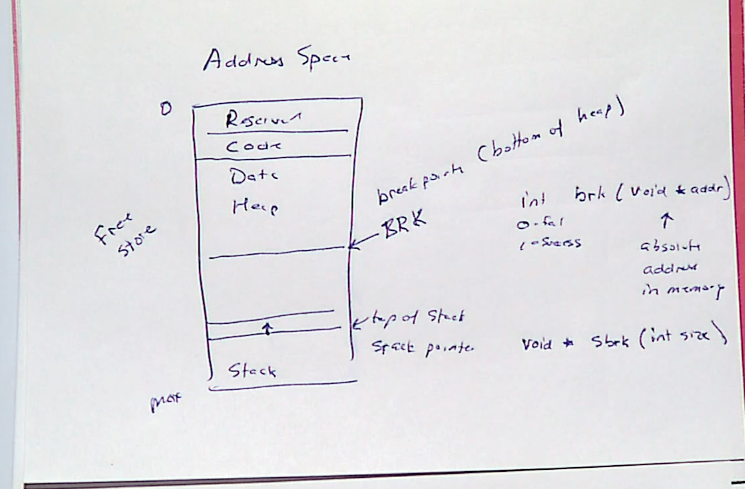 Address Space
0
Reserved
Code
Data
Heap
Free
Store
breakpoint (bottom of heap)
BRK
int brk (void * addr)
0-fail
1-success
↑
absolute
address
in memory
↑
top of Stack
Stack pointer
void * sbrk (int size)
Stack
max